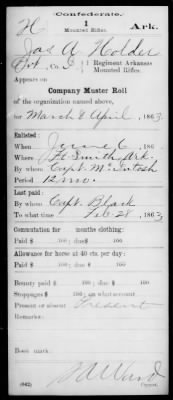 Confederate.
H 1 Ark.
Mounted Rifles.
Jas A Holder
Pvt, Co. G, 1 Regiment Arkansas
Mounted Rifles.
Appears on
Company Muster Roll
of the organization named above,
for March & April, 1863.
Enlisted:
When June 6, 186
Where Ft Smith Ark.
By whom Capt. McIntosh
Period 12 mo.
Last paid:
By whom Capt. Black
To what time Feb 28, 1863
Commutation for months clothing:
Paid $ 100; due $ 100
Allowance for horse at 40 cts. per day:
Paid $ 100; due $ 100
Bounty paid $ 100; due $ 100
Stoppages $ 100; on what account
Present or absent Present
Remarks:
Book mark:
(642) Copyist.